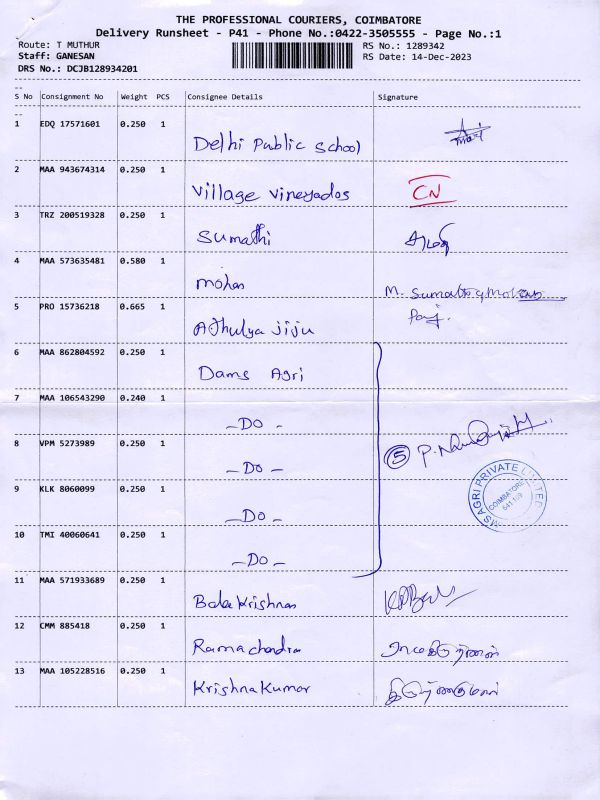 THE PROFESSIONAL COURIERS, COIMBATORE
Delivery Runsheet - P41 - Phone No.:0422-3505555 - Page No.:1
Route: T MUTHUR RS No.: 1289342
Staff: GANESAN RS Date: 14-Dec-2023
DRS No.: DCJB128934201
S No Consignment No Weight PCS Consignee Details Signature
1 EDQ 17571601 0.250 1
Delhi Public School
2 MAA 943674314 0.250 1
Village Vineyados CN
3 TRZ 200519328 0.250 1
Sumathi சுமதி
4 MAA 573635481 0.580 1
Mohan M.
5 PRO 15736218 0.665 1
Athulya Jiju
6 MAA 862804592 0.250 1
Dams Agri
7 MAA 106543290 0.240 1
- Do -
8 VPM 5273989 0.250 1
- Do - 5
9 KLK 8060099 0.250 1
- Do -
MS AGRI PRIVATE LIMITED
COIMBATORE
641 109
10 TMI 40060641 0.250 1
- Do -
11 MAA 571933689 0.250 1
Bala Krishnan
12 CMM 885418 0.250 1
Ramachandra
13 MAA 105228516 0.250 1
Krishna Kumar